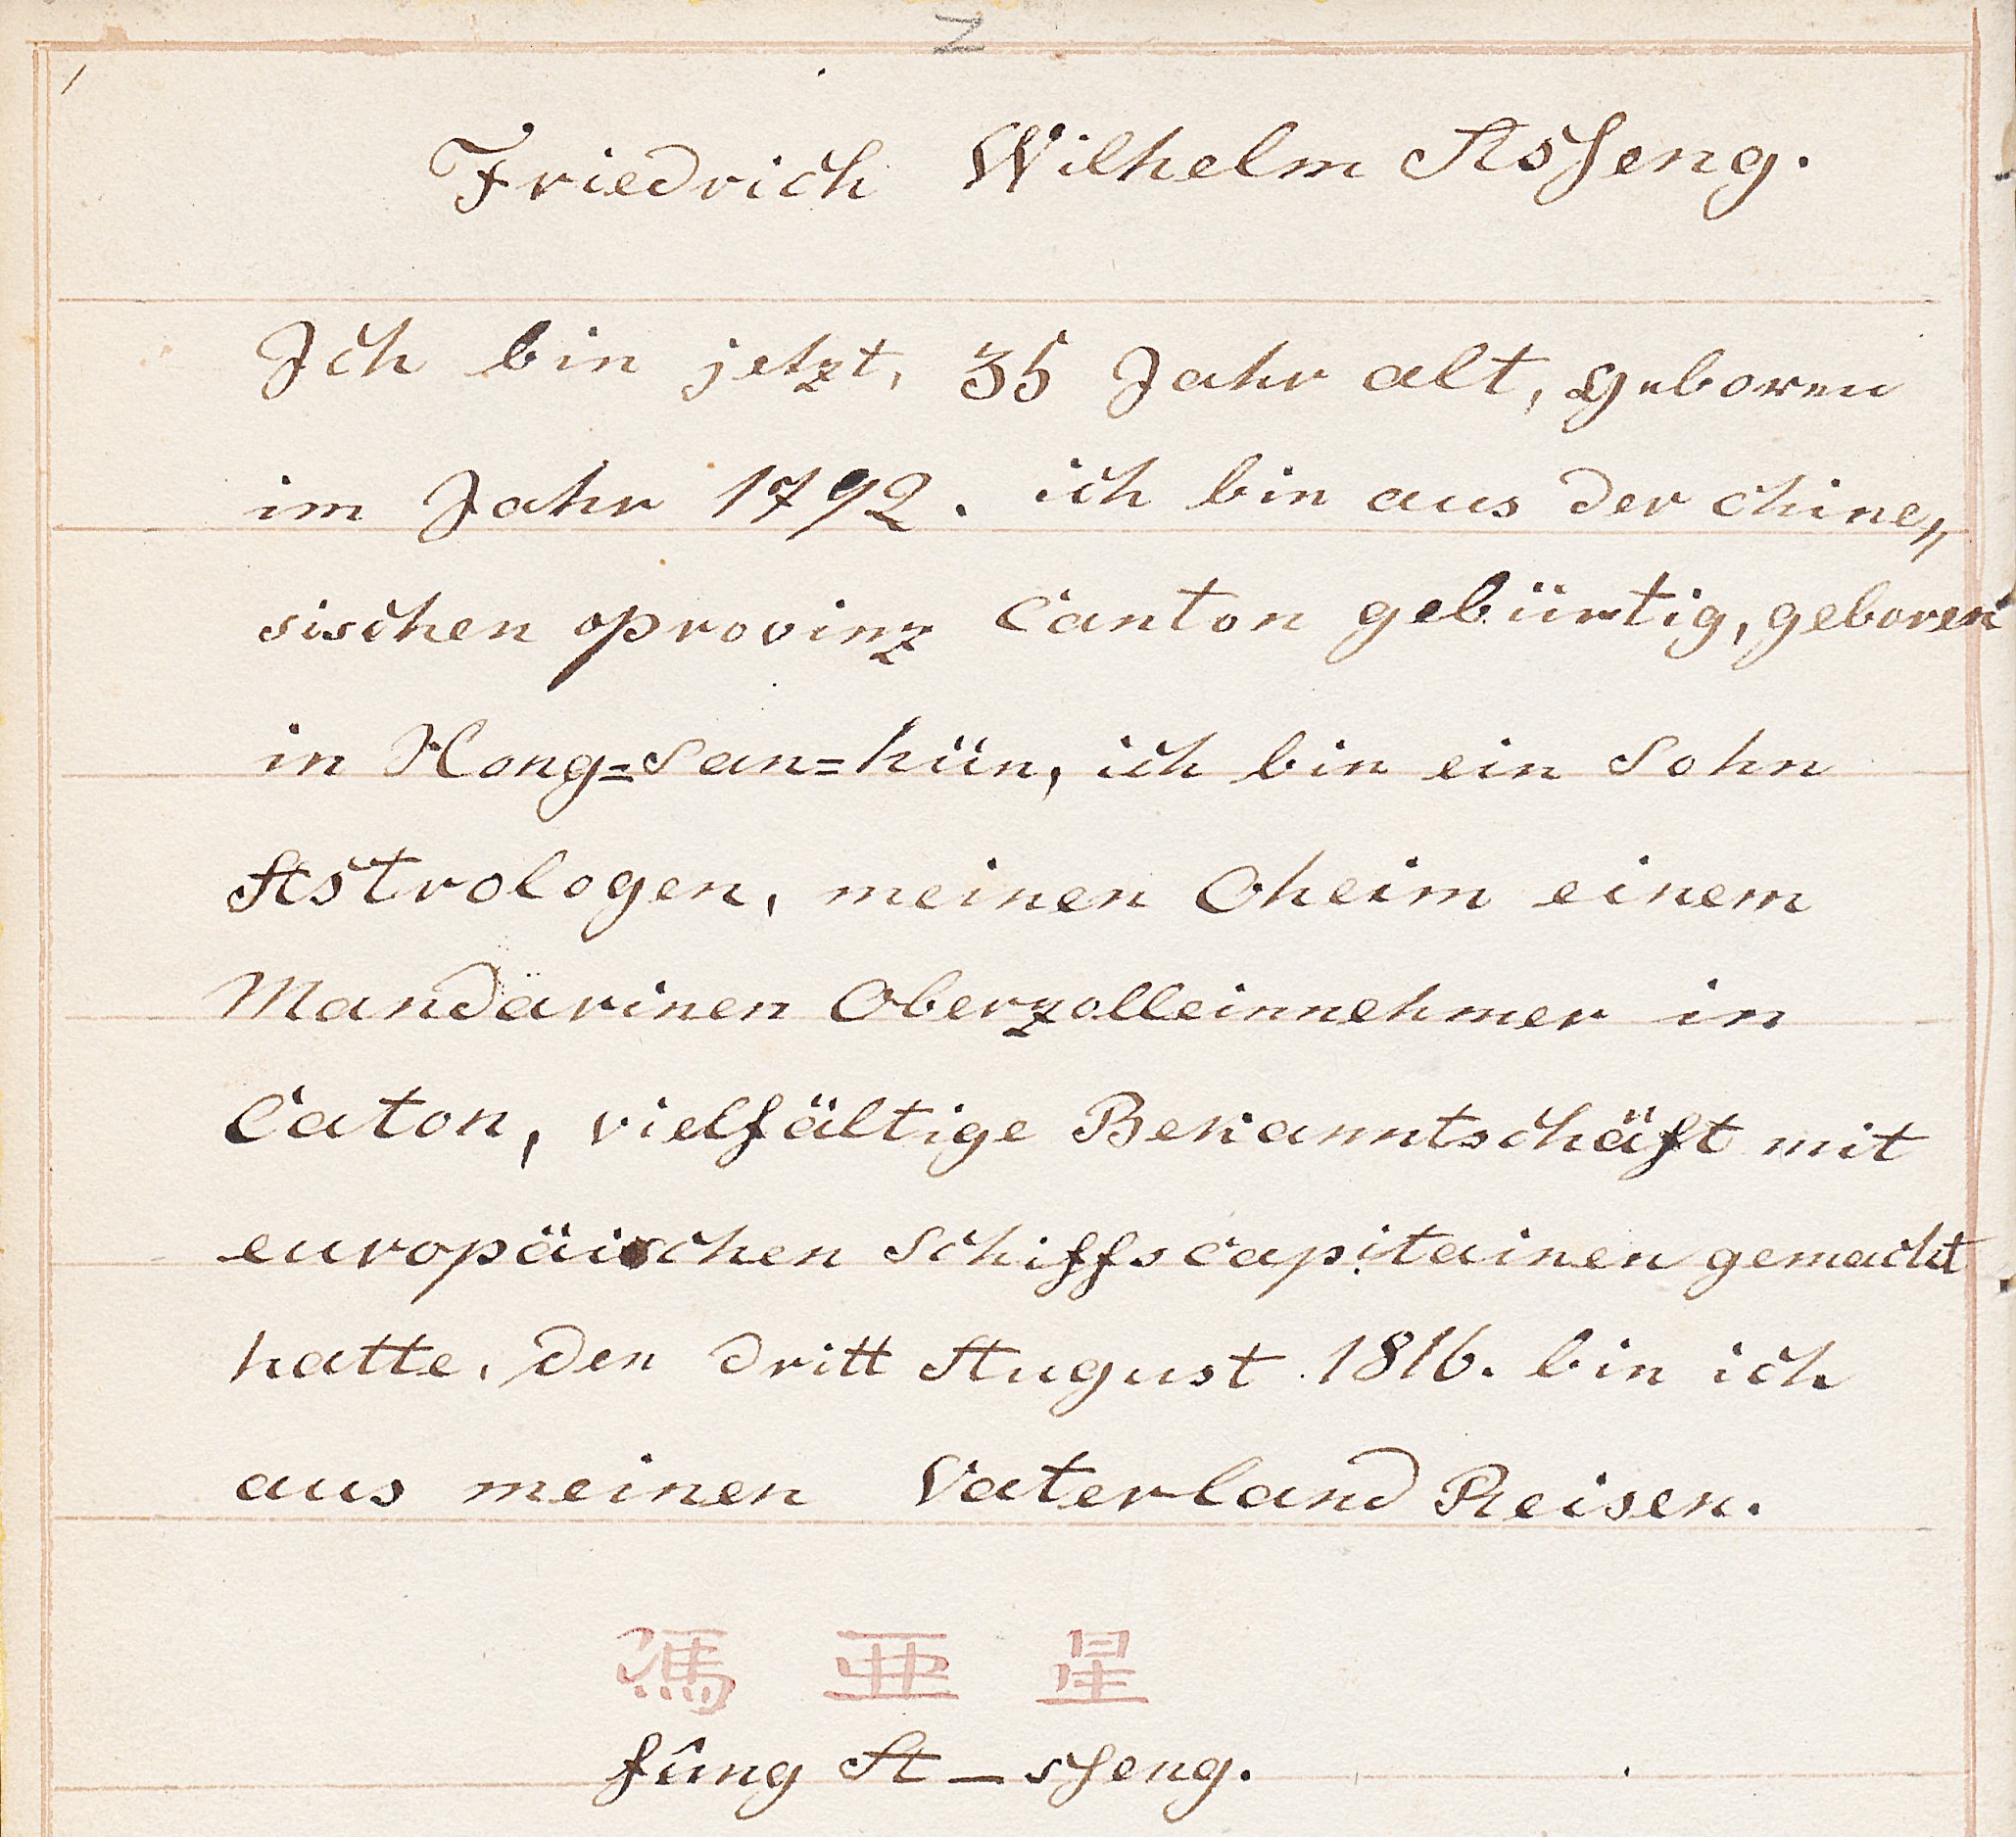 2
Friedrich Wilhelm Asseng.
Ich bin jetzt, 35 Jahr alt, geboren
im Jahr 1792. ich bin aus der chine„
sischen provinz Canton gebürtig, geboren
in Hong=San=hün, ich bin ein Sohn
Astrologen, meinen Oheim einem
Mandärinen Oberzolleinnehmer in
Caton, vielfältige Bekanntschäft mit
europäischen Schiffscapitainen gemacht
hatte, den dritt August 1816. bin ich
aus meinen Vaterland Reisen.
馮 亞 星
fûng A – sseng.